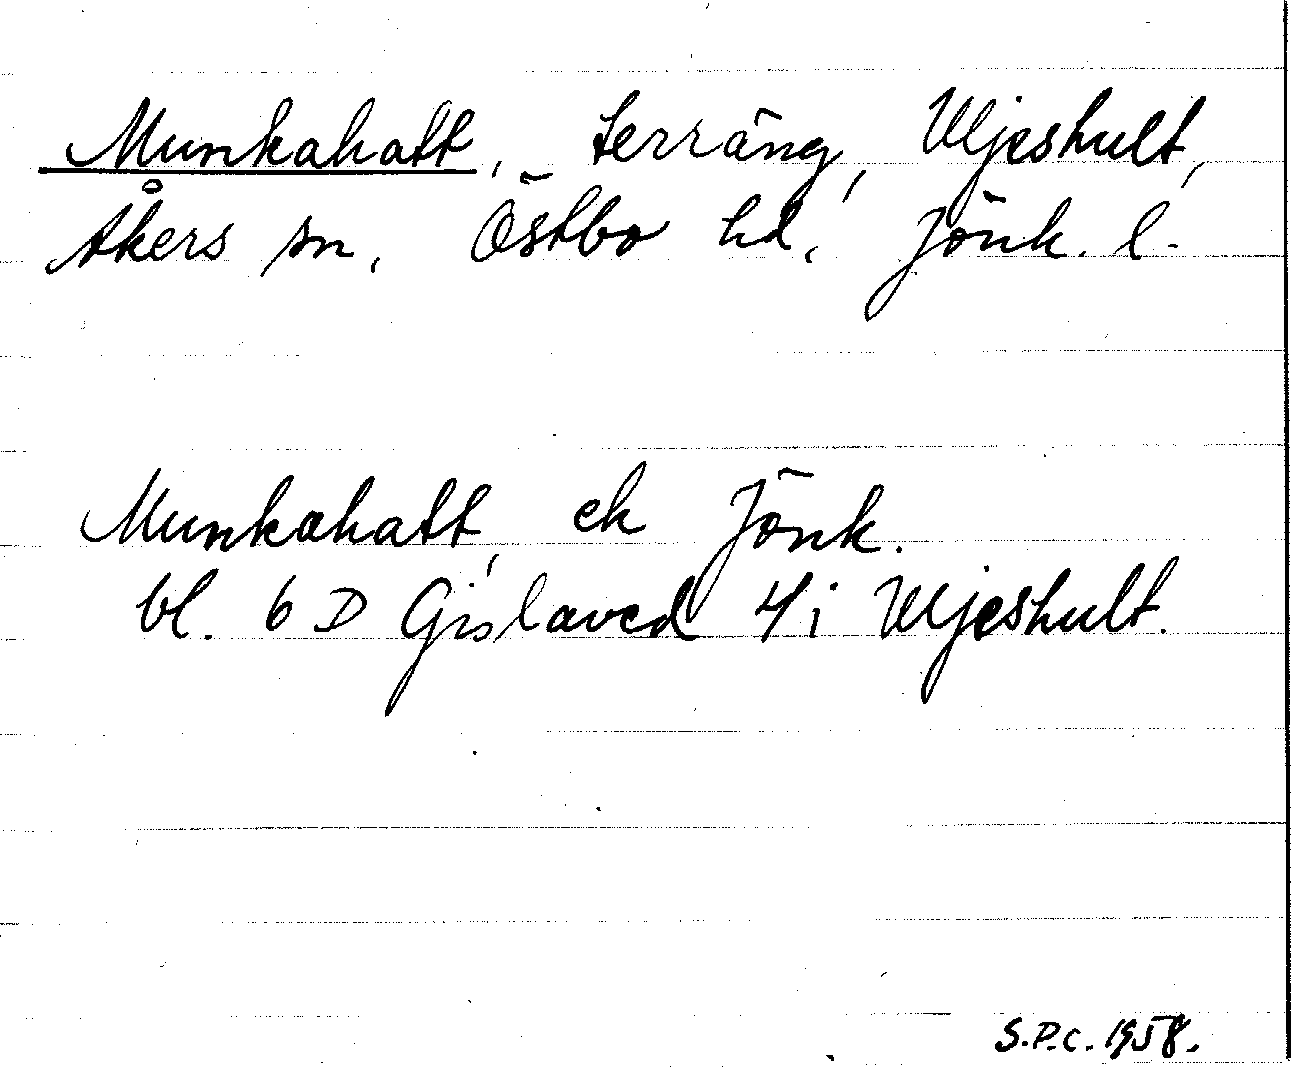 Munkahatt, terräng, Uljeshult,
Åkers sn, Östbo hd, Jönk. l.
Munkahatt, ek Jönk.
bl. 6 D Gislaved 4 i Uljeshult.
S.P.C. 1958.